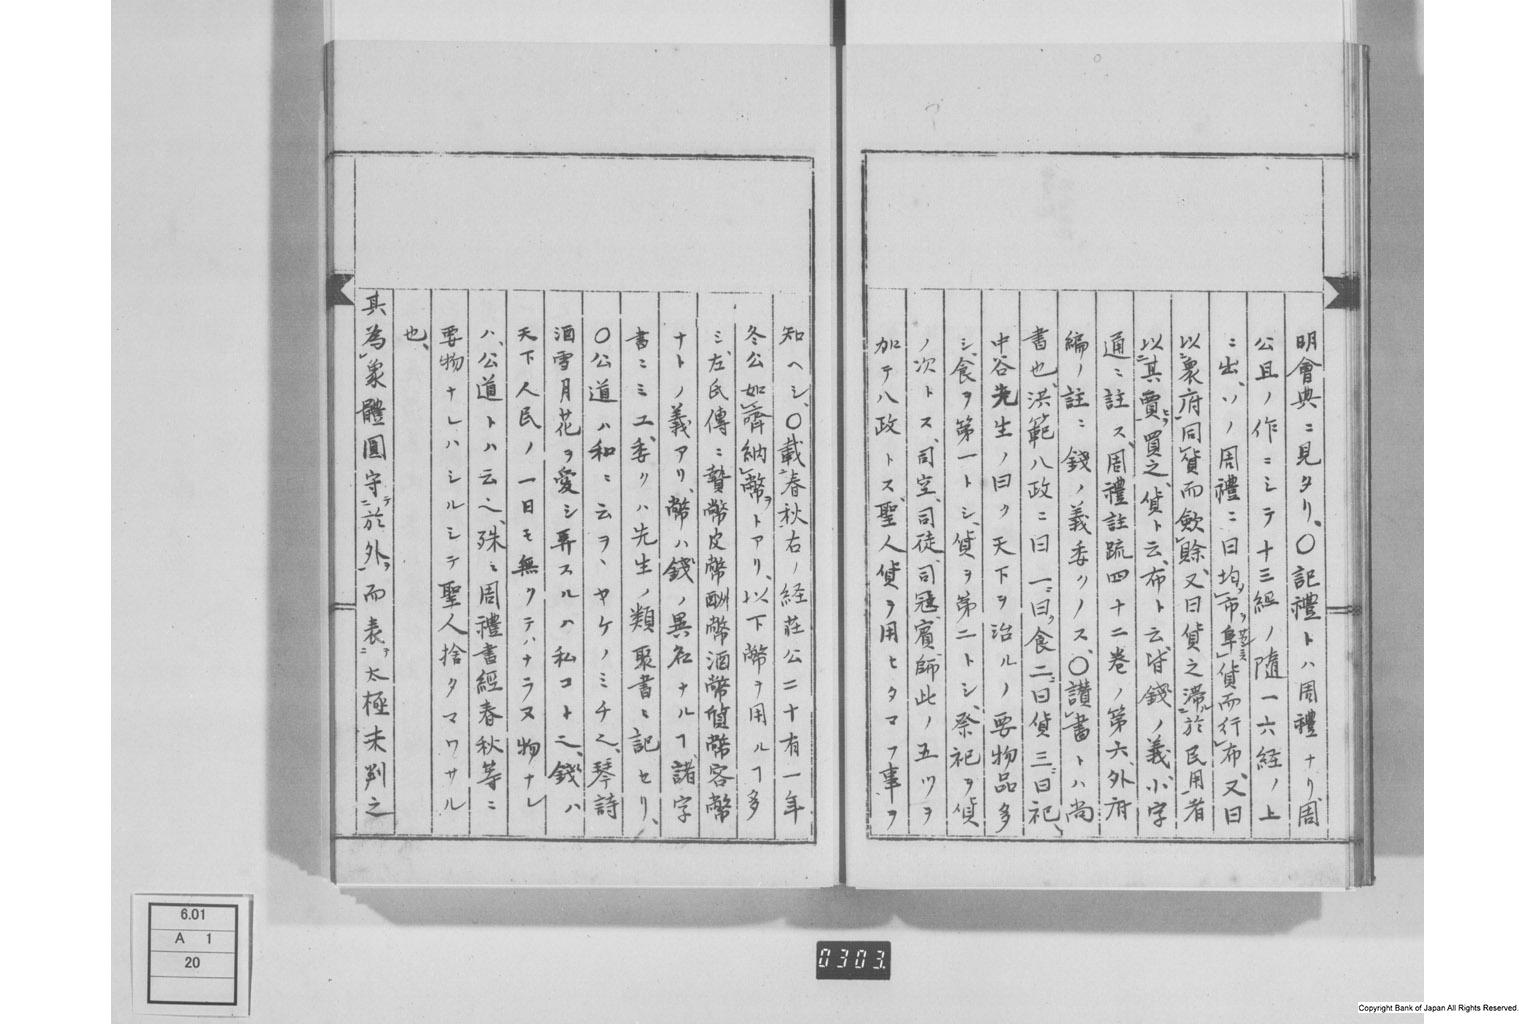 明會典ニ見タリ、〇記禮トハ周禮ナリ周
公且ノ作ニシテ十三經ノ隨一六経ノ上
ニ出、ソノ周禮ニ曰均市阜貨而行布又曰
以裏府同貨而斂賖又曰貨之滯於民用者
以其賈買之貨ト云布ト云皆錢ノ義小字
通ニ註ス周禮註疏四十二卷ノ第六外府
編ノ註ニ錢ノ義委クノス、〇讃書トハ尚
書也洪範八政ニ曰一曰食二曰貨三曰祀、
中谷先生ノ曰ク天下ヲ治ルノ要物品多
シ食ヲ第一トシ貨ヲ第二トシ祭祀ヲ貨
ノ次トス司空司徒司冦賓師此ノ五ツヲ
加テ八政トス聖人貨ヲ用ヒタマフ事ヲ
知ヘシ、〇載春秋右ノ経荘公二十有一年
冬公如齊納幣トアリ以下幣ヲ用ルヿ多
シ左氏傳ニ贄幣皮幣酬幣酒幣貨幣客幣
ナトノ義アリ幣ハ錢ノ異名ナルヿ諸字
書ニミエ委クハ先生ノ類聚書ニ記セリ、
〇公道ハ和ニ云ヲヽヤケノミチ也琴詩
酒雪月花ヲ愛シ弄スルハ私コト也錢ハ
天下人民ノ一日モ無クテハナラヌ物ナレ
ハ公道トハ云ヘ殊ニ周禮書經春秋等ニ
要物ナレハシルシテ聖人捨タマワサル
也、
其為象體圓守於外而表太極未判之
6.01
A 1
20
0303.
Copyright Bank of Japan All Rights Reserved.